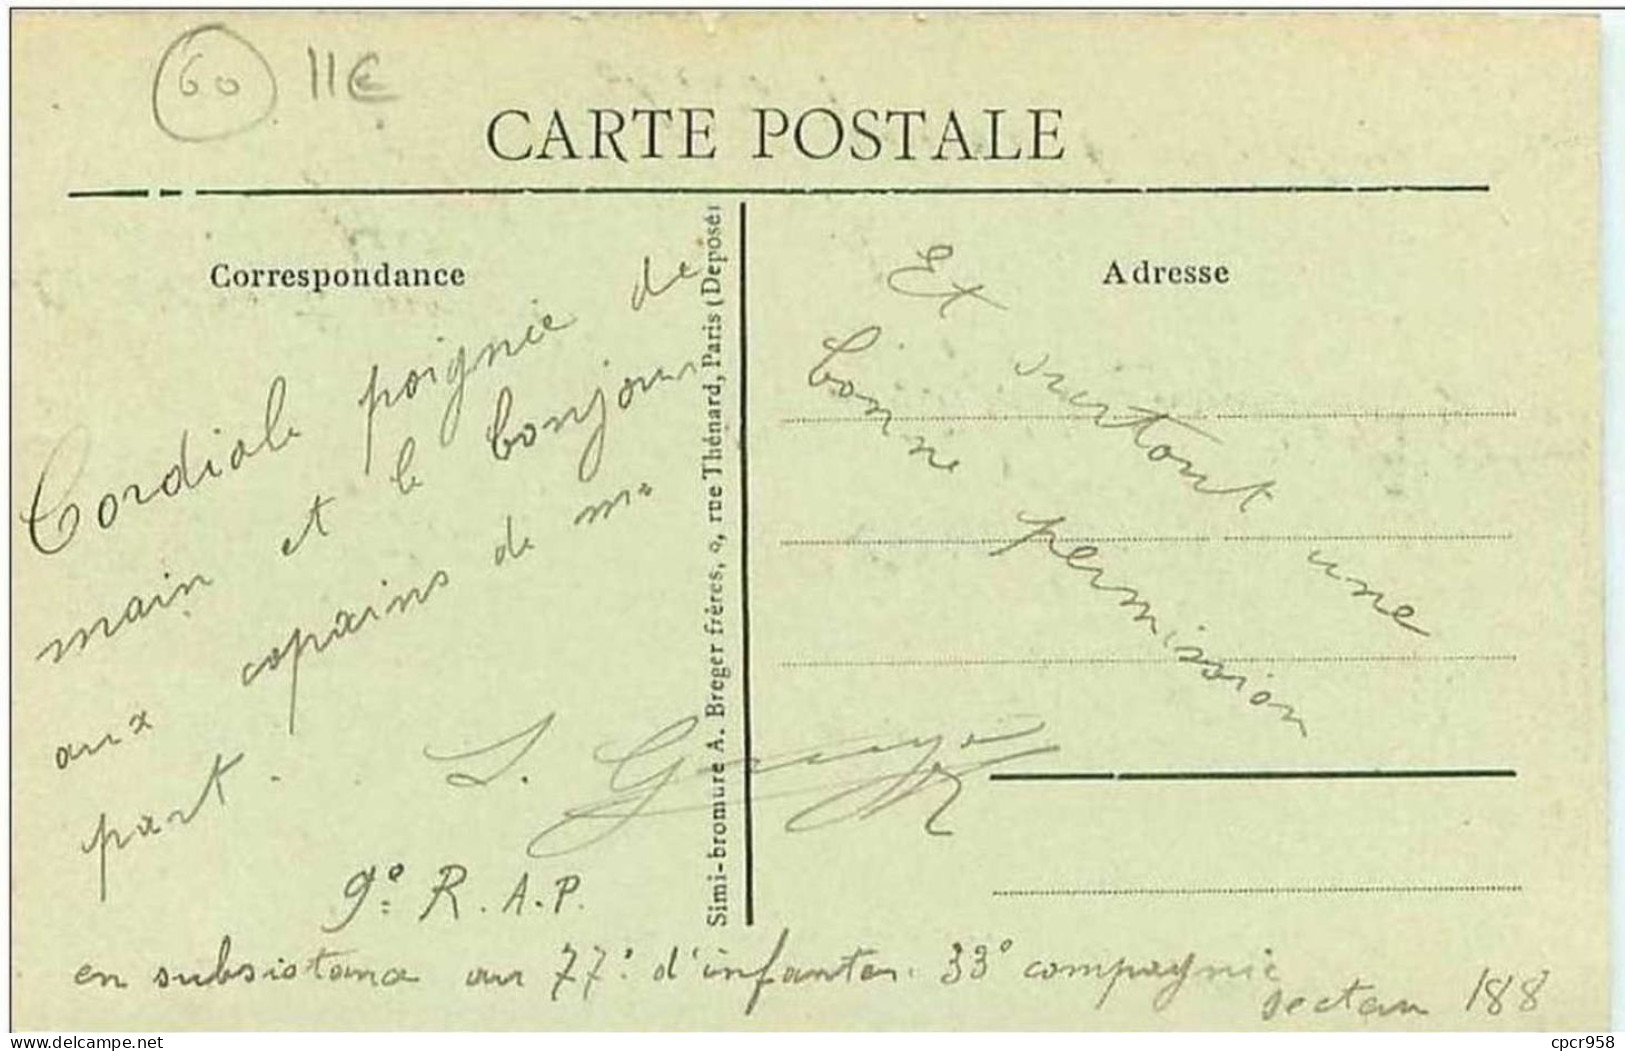 60 11€
CARTE POSTALE
Correspondance
Cordiale poignée de
main et le bonjour
aux copains de ma
part.
9e R.A.P.
Simi-bromure A. Breger frères, 9, rue Thénard, Paris (Déposé)
Adresse
Et surtout une
bonne permission
en subsistance au 77e d'infanterie 33e compagnie
secteur 188
cpcr958